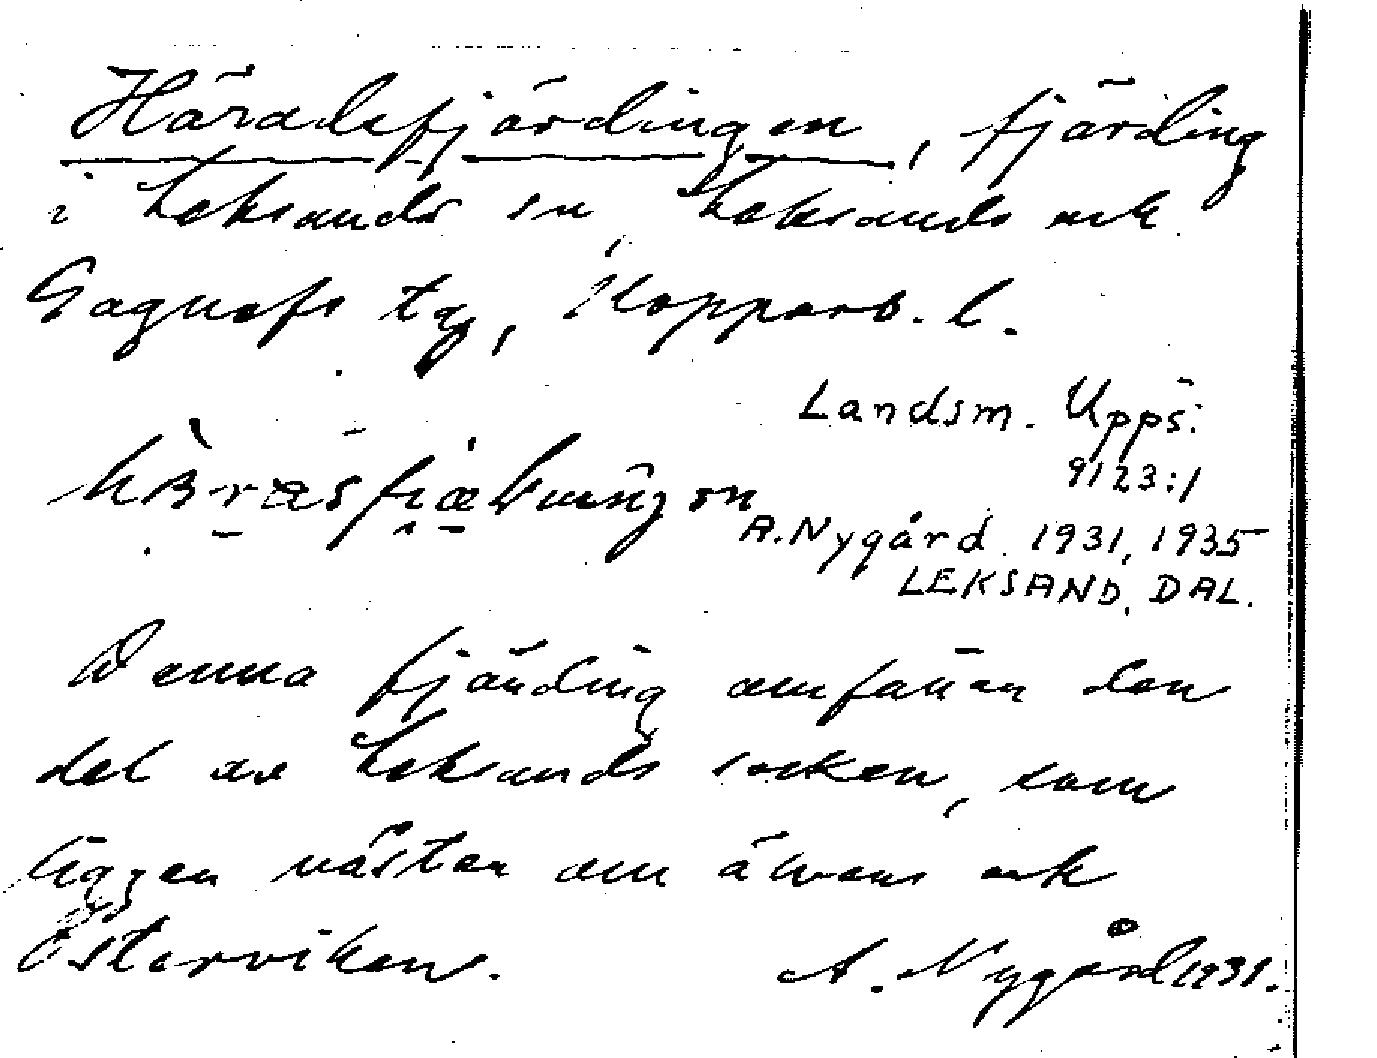 Häradsfjärdingen, fjärding
i Leksands sn, Leksands och
Gagnefs tg, Kopparb. l.
Landsm. Upps.
9123:1
A. Nygård 1931, 1935
LEKSAND, DAL.
Denna fjärding omfattar den
del av Leksands socken, som
ligger väster om älven och
Österviken.
A. Nygård 1931.